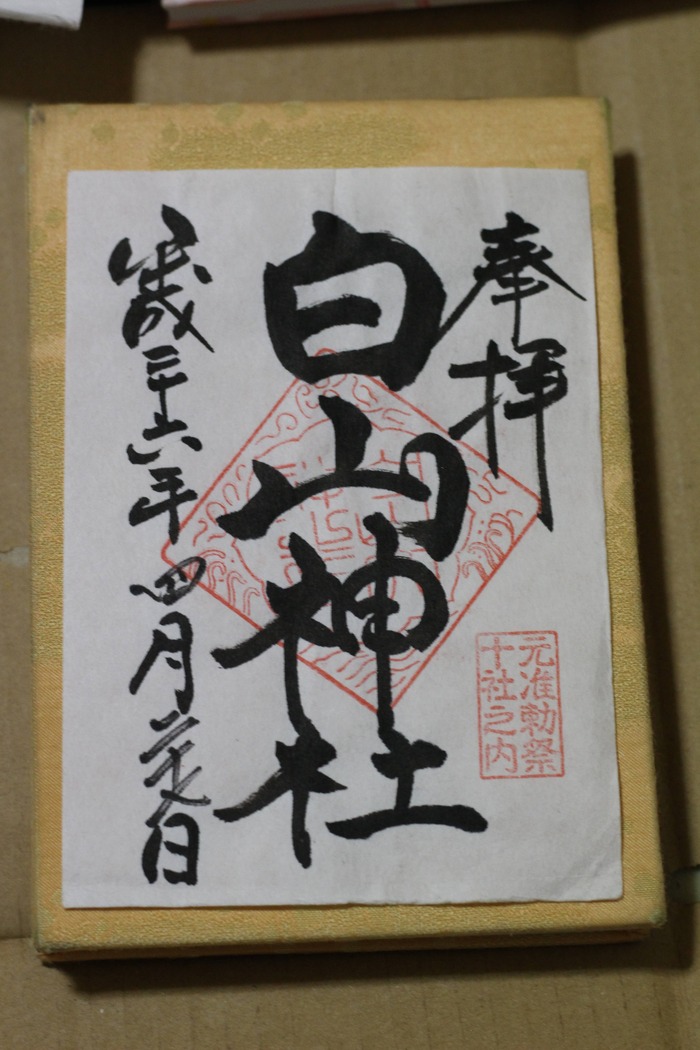 奉拝
元准勅祭
十社之内
白山神社
平成二十六年四月二十七日